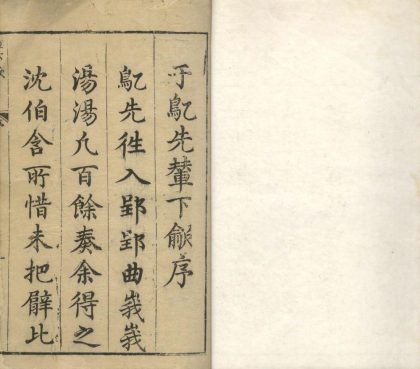 于鳦先輦下歈序
鳦先徃入郢郢曲峩峩
湯湯凡百餘奏余得之
沈伯含所惜未把臂比